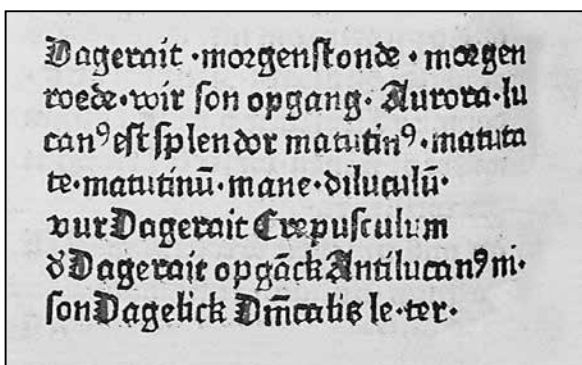 Dagerait · morgenſtonde · morgen
roede · vvir ſon opgang · Aurora · lu
canꝰ eſt ſplendor matutinꝰ · matuta
te · matutinū · mane · diluculū ·
vur Dagerait Crepuſculum
đ Dagerait opgāck Antilucanꝰ ni ·
ſon Dagelick Dm̄calis le · ter ·